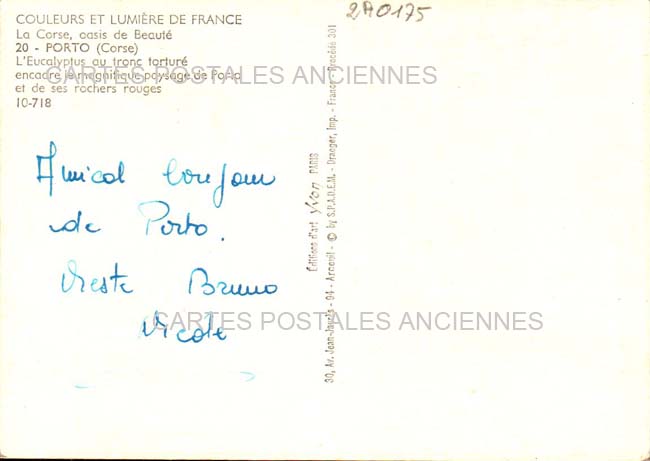 COULEURS ET LUMIÈRE DE FRANCE
La Corse, oasis de Beauté
20 - PORTO (Corse)
L'Eucalyptus au tronc torturé
encadre le magnifique paysage de Porto
et de ses rochers rouges
10-718
2A0175
CARTES POSTALES ANCIENNES
Amical bonjour
de Porto.
Bruno
Nicole
CARTES POSTALES ANCIENNES
Editions d'art yvon PARIS
30, Av. Jean-Jaurès - 94 - Arcueil - © by S.P.A.D.E.M. - Draeger, Imp. - France - Procédé 301